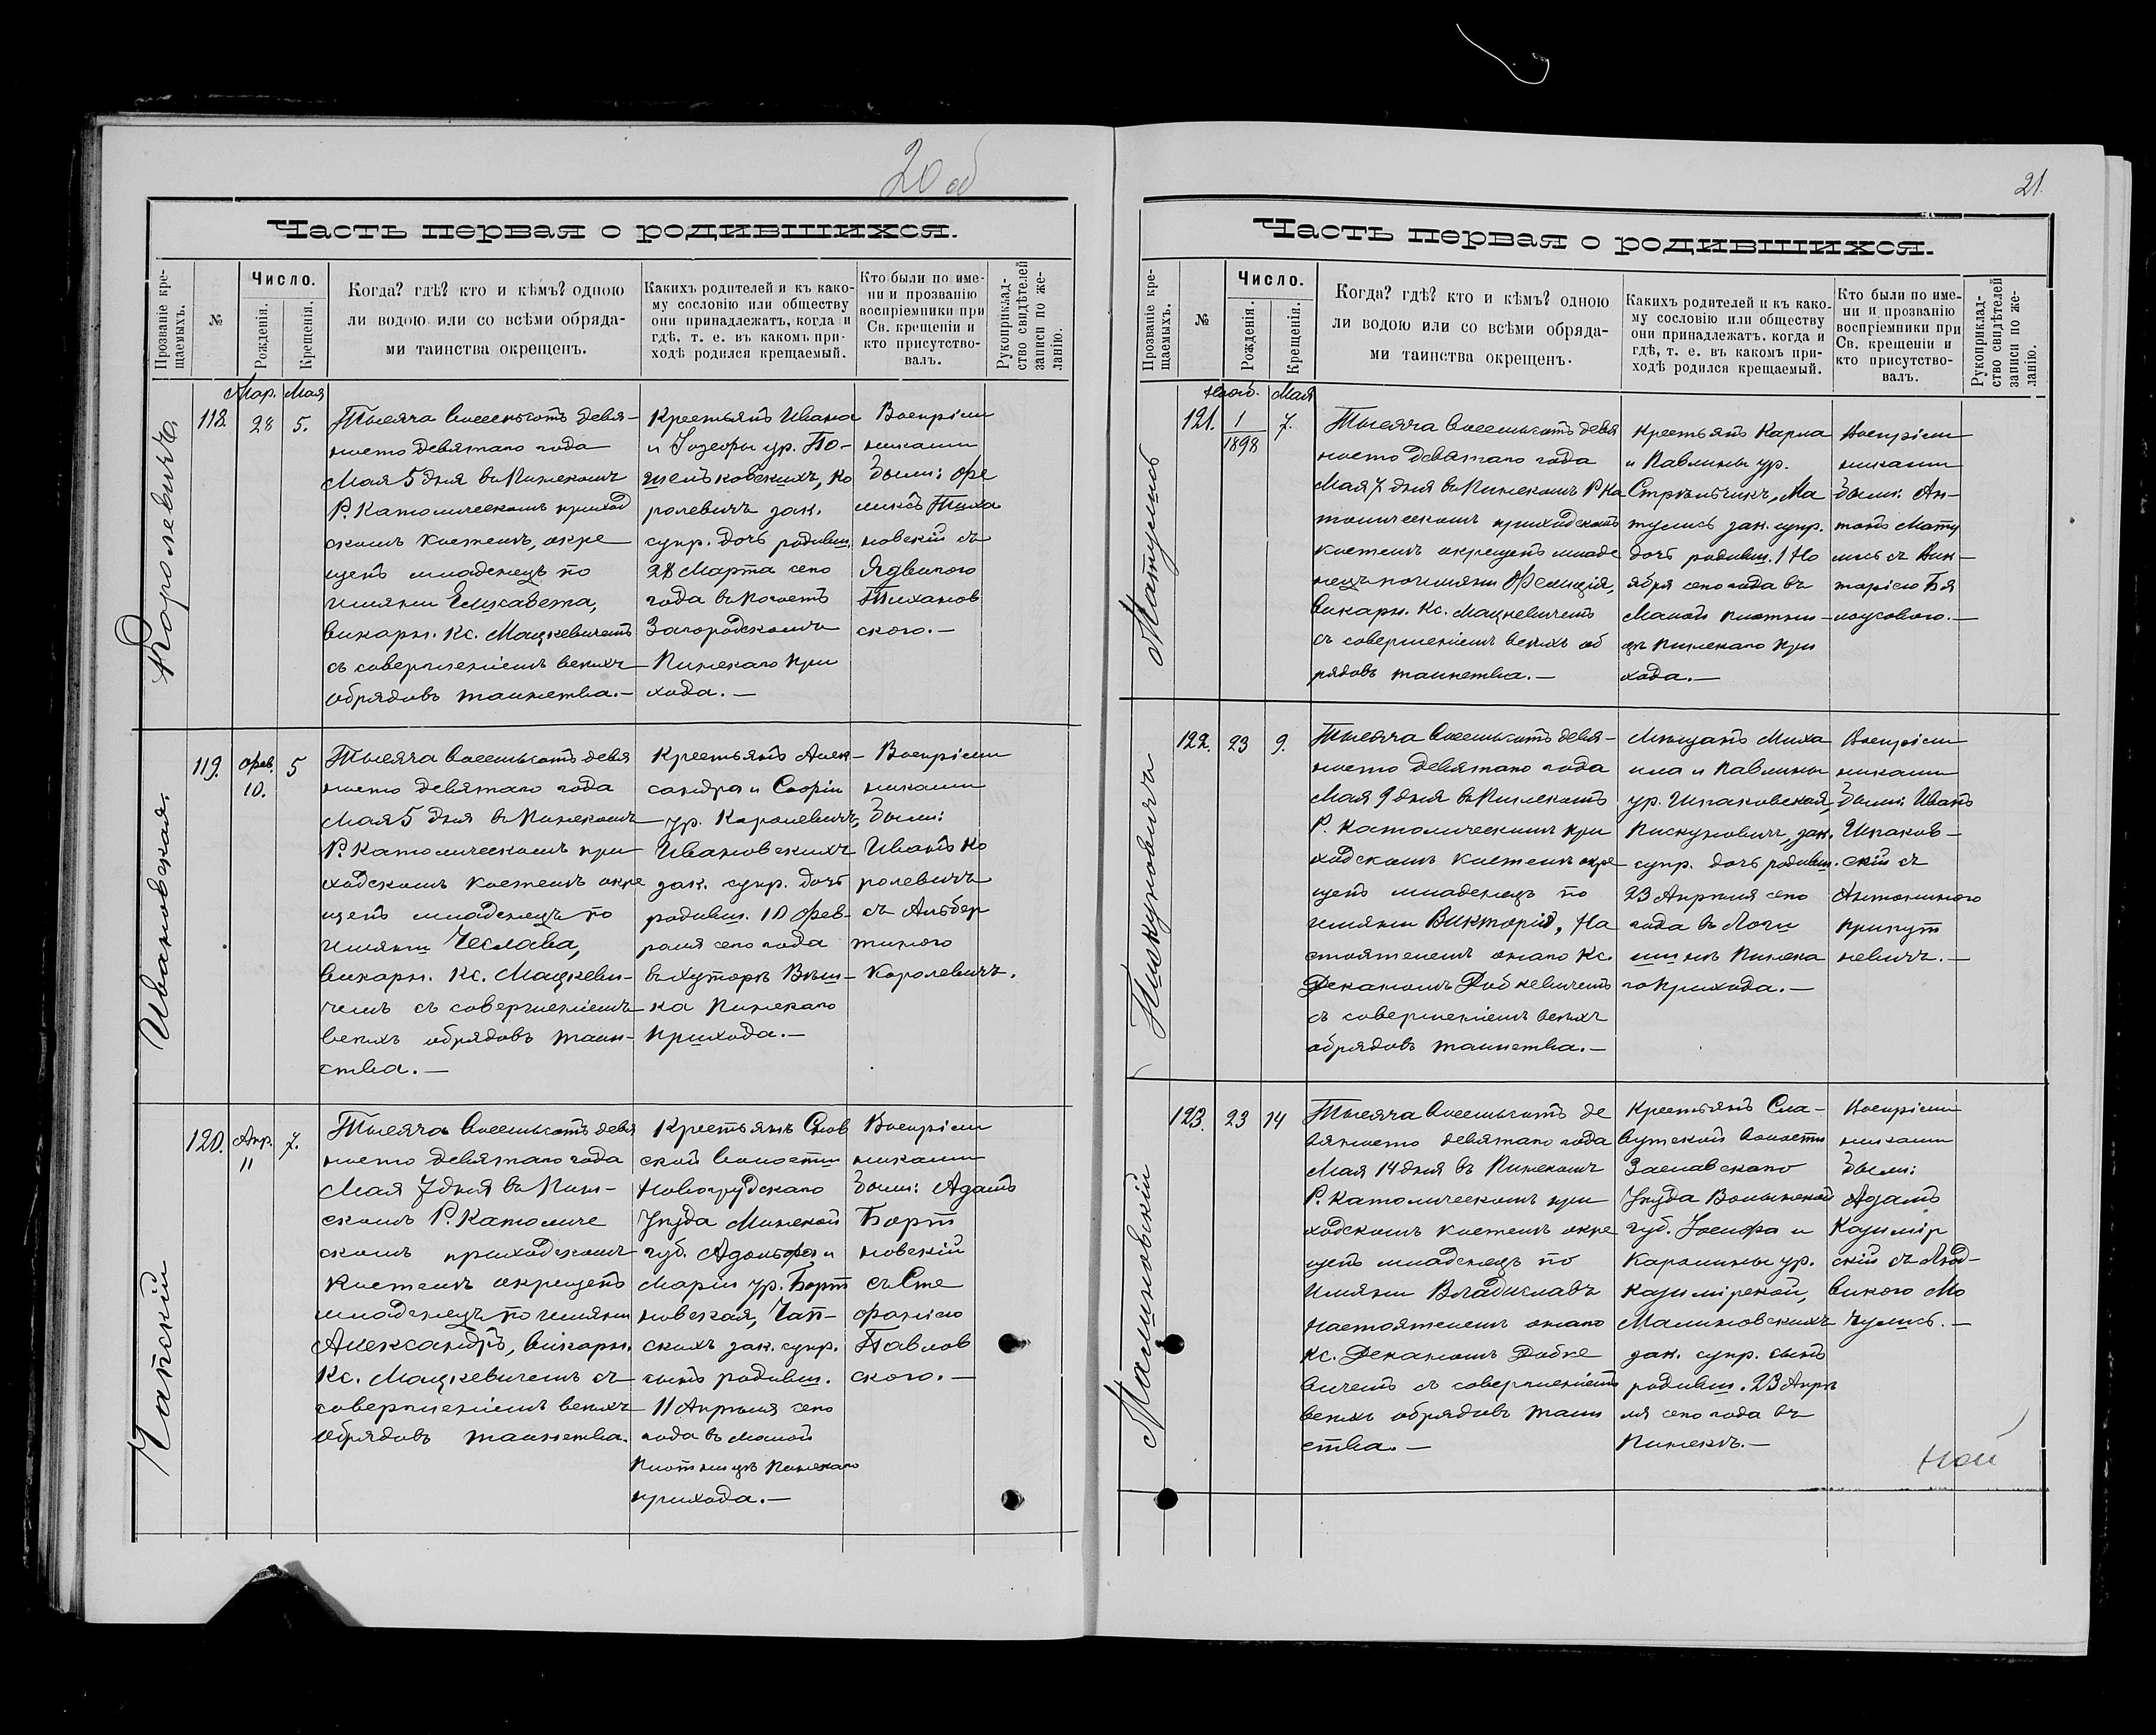 20 об
Часть первая о родившихся.
Прозваніе кре-
щаемыхъ.
№
Число.
Рожденія.
Крещенія.
Когда? гдѣ? кто и кѣмъ? одною
ли водою или со всѣми обряда-
ми таинства окрещенъ.
Какихъ родителей и къ како-
му сословію или обществу
они принадлежатъ, когда и
гдѣ, т. е. въ какомъ при-
ходѣ родился крещаемый.
Кто были по име-
ни и прозванію
воспріемники при
Св. крещеніи и
кто присутство-
валъ.
Рукоприклад-
ство свидѣтелей
записи по же-
ланію.
Королевичъ.
118.
Мар.
28
Мая
5.
Тысяча восемьсотъ девя-
носто девятаго года
Мая 5 дня въ Пинскомъ
Р. Католическомъ приход
скомъ костелѣ, окре
щенъ младенецъ по
имяни Елисавета,
викарн. Кс. Мацкевичемъ
съ совершеніемъ всѣхъ
обрядовъ таинства.—
Крестьянъ Ивана
и Іозефы ур.
ролевичъ зак.
супр. дочь родивш.
28 Марта сего
года въ погостѣ
Загородскомъ
Пинскаго при
хода.—
Воспріем
никами
были: Фе
ликсъ Тиха
новскій съ
Ядвигою
Тиханов
скою.—
Ивановская.
119.
Фев.
10.
5
Тысяча восемьсотъ девя
носто девятаго года
Мая 5 дня въ Пинскомъ
Р. Католическомъ при
ходскомъ костелѣ окре
щенъ младенецъ по
имяни Чеслава,
викарн. Кс. Мацкеви-
чемъ съ совершеніемъ
всѣхъ обрядовъ таин-
ства.—
Крестьянъ Алек-
сандра и Софіи
ур. Королевичъ,
Ивановскихъ
зак. супр. дочь
родивш. 10 Фев-
раля сего года
въ хуторѣ Выш-
ка Пинскаго
прихода.—
Воспріем
никами
были:
Иванъ Ко
ролевичъ
съ Альбер
тиною
Королевичъ.
Чапскій
120.
Апр.
11
7.
Тысяча восемьсотъ девя
носто девятаго года
Мая 7 дня въ Пин-
скомъ Р. Католиче
скомъ приходскомъ
костелѣ окрещенъ
младенецъ по имяни
Александръ, викарн.
Кс. Мацкевичемъ съ
совершеніемъ всѣхъ
обрядовъ таинства.
Крестьянъ
ской волости
Новогрудскаго
Уѣзда Минской
губ. Адольфа и
Маріи ур. Борт
новская, Чап-
скихъ зак. супр.
сынъ родивш.
11 Апрѣля сего
года въ Малой
Плотницѣ Пинскаго
прихода.—
Воспріем
никами
были: Адамъ
Борт
новскій
съ Сте
фаніею
Павлов
скою.—
21.
Часть первая о родившихся.
Прозваніе кре-
щаемыхъ.
№
Число.
Рожденія.
Крещенія.
Когда? гдѣ? кто и кѣмъ? одною
ли водою или со всѣми обряда-
ми таинства окрещенъ.
Какихъ родителей и къ како-
му сословію или обществу
они принадлежатъ. когда и
гдѣ, т. е. въ какомъ при-
ходѣ родился крещаемый.
Кто были по име-
ни и прозванію
воспріемники при
Св. крещеніи и
кто присутство-
валъ.
Рукоприклад-
ство свидѣтелей
записи по же-
ланію.
Матулись
121.
Нояб.
1
1898
Мая
7.
Тысяча восемьсотъ девя
носто девятаго года
Мая 7 дня въ Пинскомъ Р Ка
толическомъ приходскомъ
костелѣ окрещенъ младе
нецъ по имяни Фелиція,
викарн. Кс. Мацкевичемъ
съ совершеніемъ всѣхъ об
рядовъ таинства.—
Крестьянъ Карла
и Павлины ур.
Стрѣльчикъ, Ма
тулись зак. супр.
дочь родивш. 1 Но
ября сего года въ
Малой Плотни-
цѣ Пинскаго при
хода.—
Воспріем
никами
были: Ан-
тонъ Мату
лись съ Вик-
торіею Бѣ
лоусовою.—
Пискуновичъ
122.
23
9.
Тысяча восемьсотъ девя-
носто девятаго года
Мая 9 дня въ Пинскомъ
Р. Католическомъ при
ходскомъ костелѣ окре
щенъ младенецъ по
имяни Викторія, На
стоятелемъ онаго Кс.
Деканомъ Добкевичемъ
съ совершеніемъ всѣхъ
обрядовъ таинства.—
Мѣщанъ Миха
ила и Павлины
ур. Шпаковская,
Пискуновичъ, зак.
супр. дочь родивш.
23 Апрѣля сего
года въ Логи
шинѣ Пинска
го прихода.—
Воспріем
никами
были: Иванъ
Шпаков-
скій съ
Антониною
Припут
невичъ.—
Малиновскій
123.
23
14
Тысяча восемьсотъ де
вяносто девятаго года
Мая 14 дня въ Пинскомъ
Р. Католическомъ при
ходскомъ костелѣ окре
щенъ младенецъ по
имяни Владиславъ
Настоятелемъ онаго
Кс. Деканомъ Добке
вичемъ съ совершеніемъ
всѣхъ обрядовъ таин
ства.—
Крестьянъ Сла-
вутской волости
Заславскаго
Уѣзда Волынской
губ. Іосифа и
Каролины ур.
Казимірской,
Малиновскихъ
зак. супр. сынъ
родивш. 23 Апрѣ
ля сего года въ
Пинскѣ.—
Воспріем
никами
были:
Адамъ
Казимір
скій съ Люд-
викою Мо
чулись.—